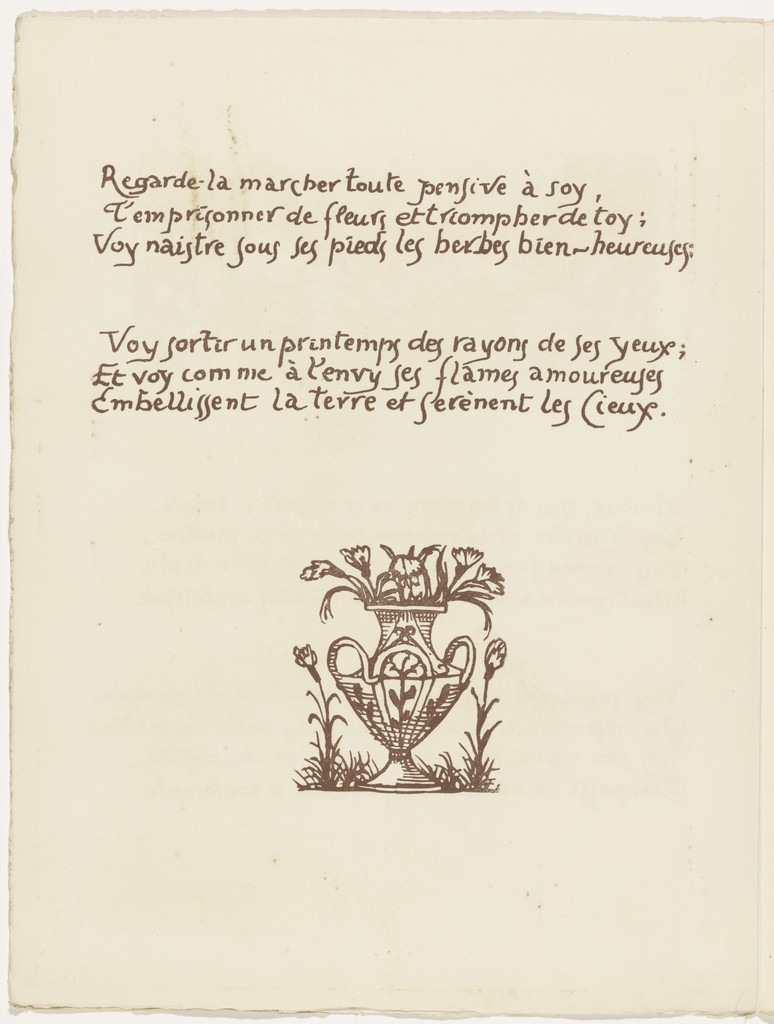 Regarde-la marcher toute pensive à soy,
T'emprisonner de fleurs et triompher de toy;
Voy naistre sous ses pieds les herbes bien-heureuses;
Voy sortir un printemps des rayons de ses yeux;
Et voy comme à l'envy ses flâmes amoureuses
Embellissent la terre et serènent les Cieux.